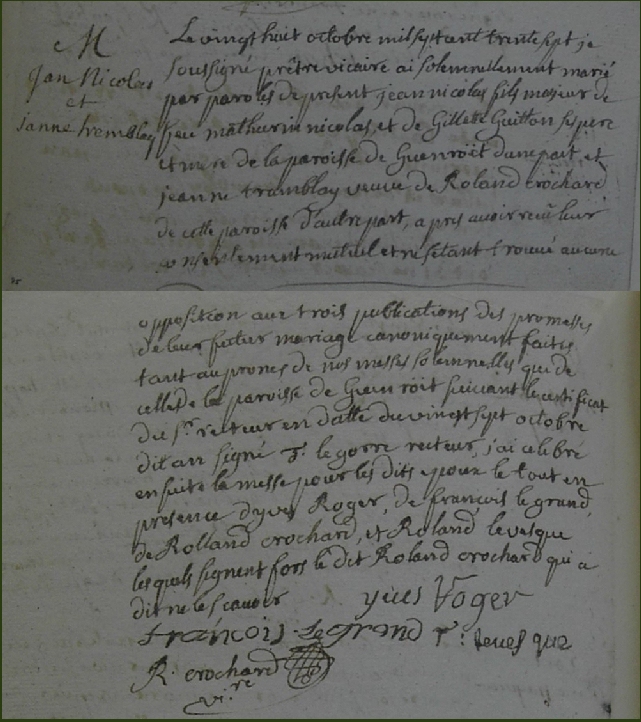 M
Jan Nicolas
et
Janne tremblay
Le vingt huit octobre mil sept cent trente sept je
soussigné prêtre vicaire ai solemnellement marié
par paroles de present jean nicolas fils majeur de
feu mathurin nicolas, et de Gillette Guitton ses pere
et mere de la paroisse de Guenroit dune part, et
jeanne tramblay veuve de Roland crochard
de cette paroisse d'autre part, apres avoir receu leur
consentement mutuel et ne s'etant trouvé aucune
opposition aux trois publications des promesses
de leur futur mariage canoniquement faites
tant au prones de nos messes solemnelles que de
celle de la paroisse de Guenroit suivant le certificat
du sr. recteur en datte du vingt sept octobre
dit an signé le gorre recteur, j'ai celebré
ensuite la messe pour les dits epoux le tout en
presence dyves Roger, de francois le grand,
de Rolland crochard, et Roland levesque
lesquels signent fors le dit Roland crochard qui a
dit ne le scavoir
yves Roger
francois Legrand
R. crochard
vi.re